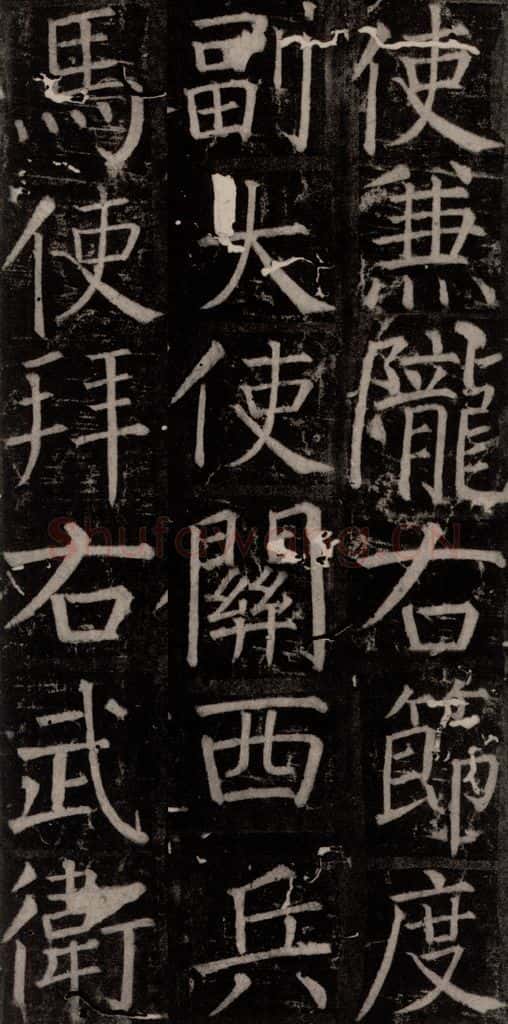 使兼隴右節度
副大使關西兵
馬使拜右武衛
Shufawang.CN